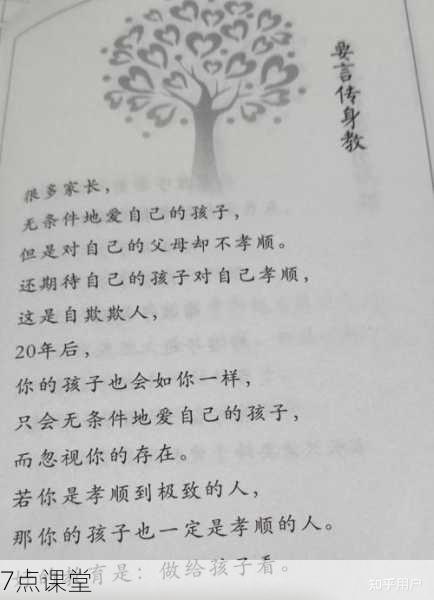 要言传身教
很多家长，
无条件地爱自己的孩子，
但是对自己的父母却不孝顺。
还期待自己的孩子对自己孝顺，
这是自欺欺人，
20年后，
你的孩子也会如你一样，
只会无条件地爱自己的孩子，
而忽视你的存在。
若你是孝顺到极致的人，
那你的孩子也一定是孝顺的人。
教育是：做给孩子看。
7点课堂
知乎用户